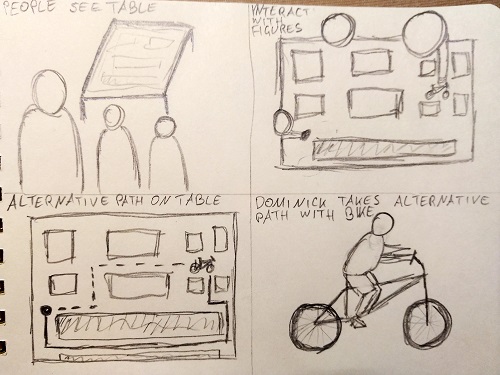 PEOPLE SEE TABLE
INTERACT
WITH
FIGURES
ALTERNATIVE PATH ON TABLE
DOMINICK TAKES ALTERNATIVE
PATH WITH BIKE